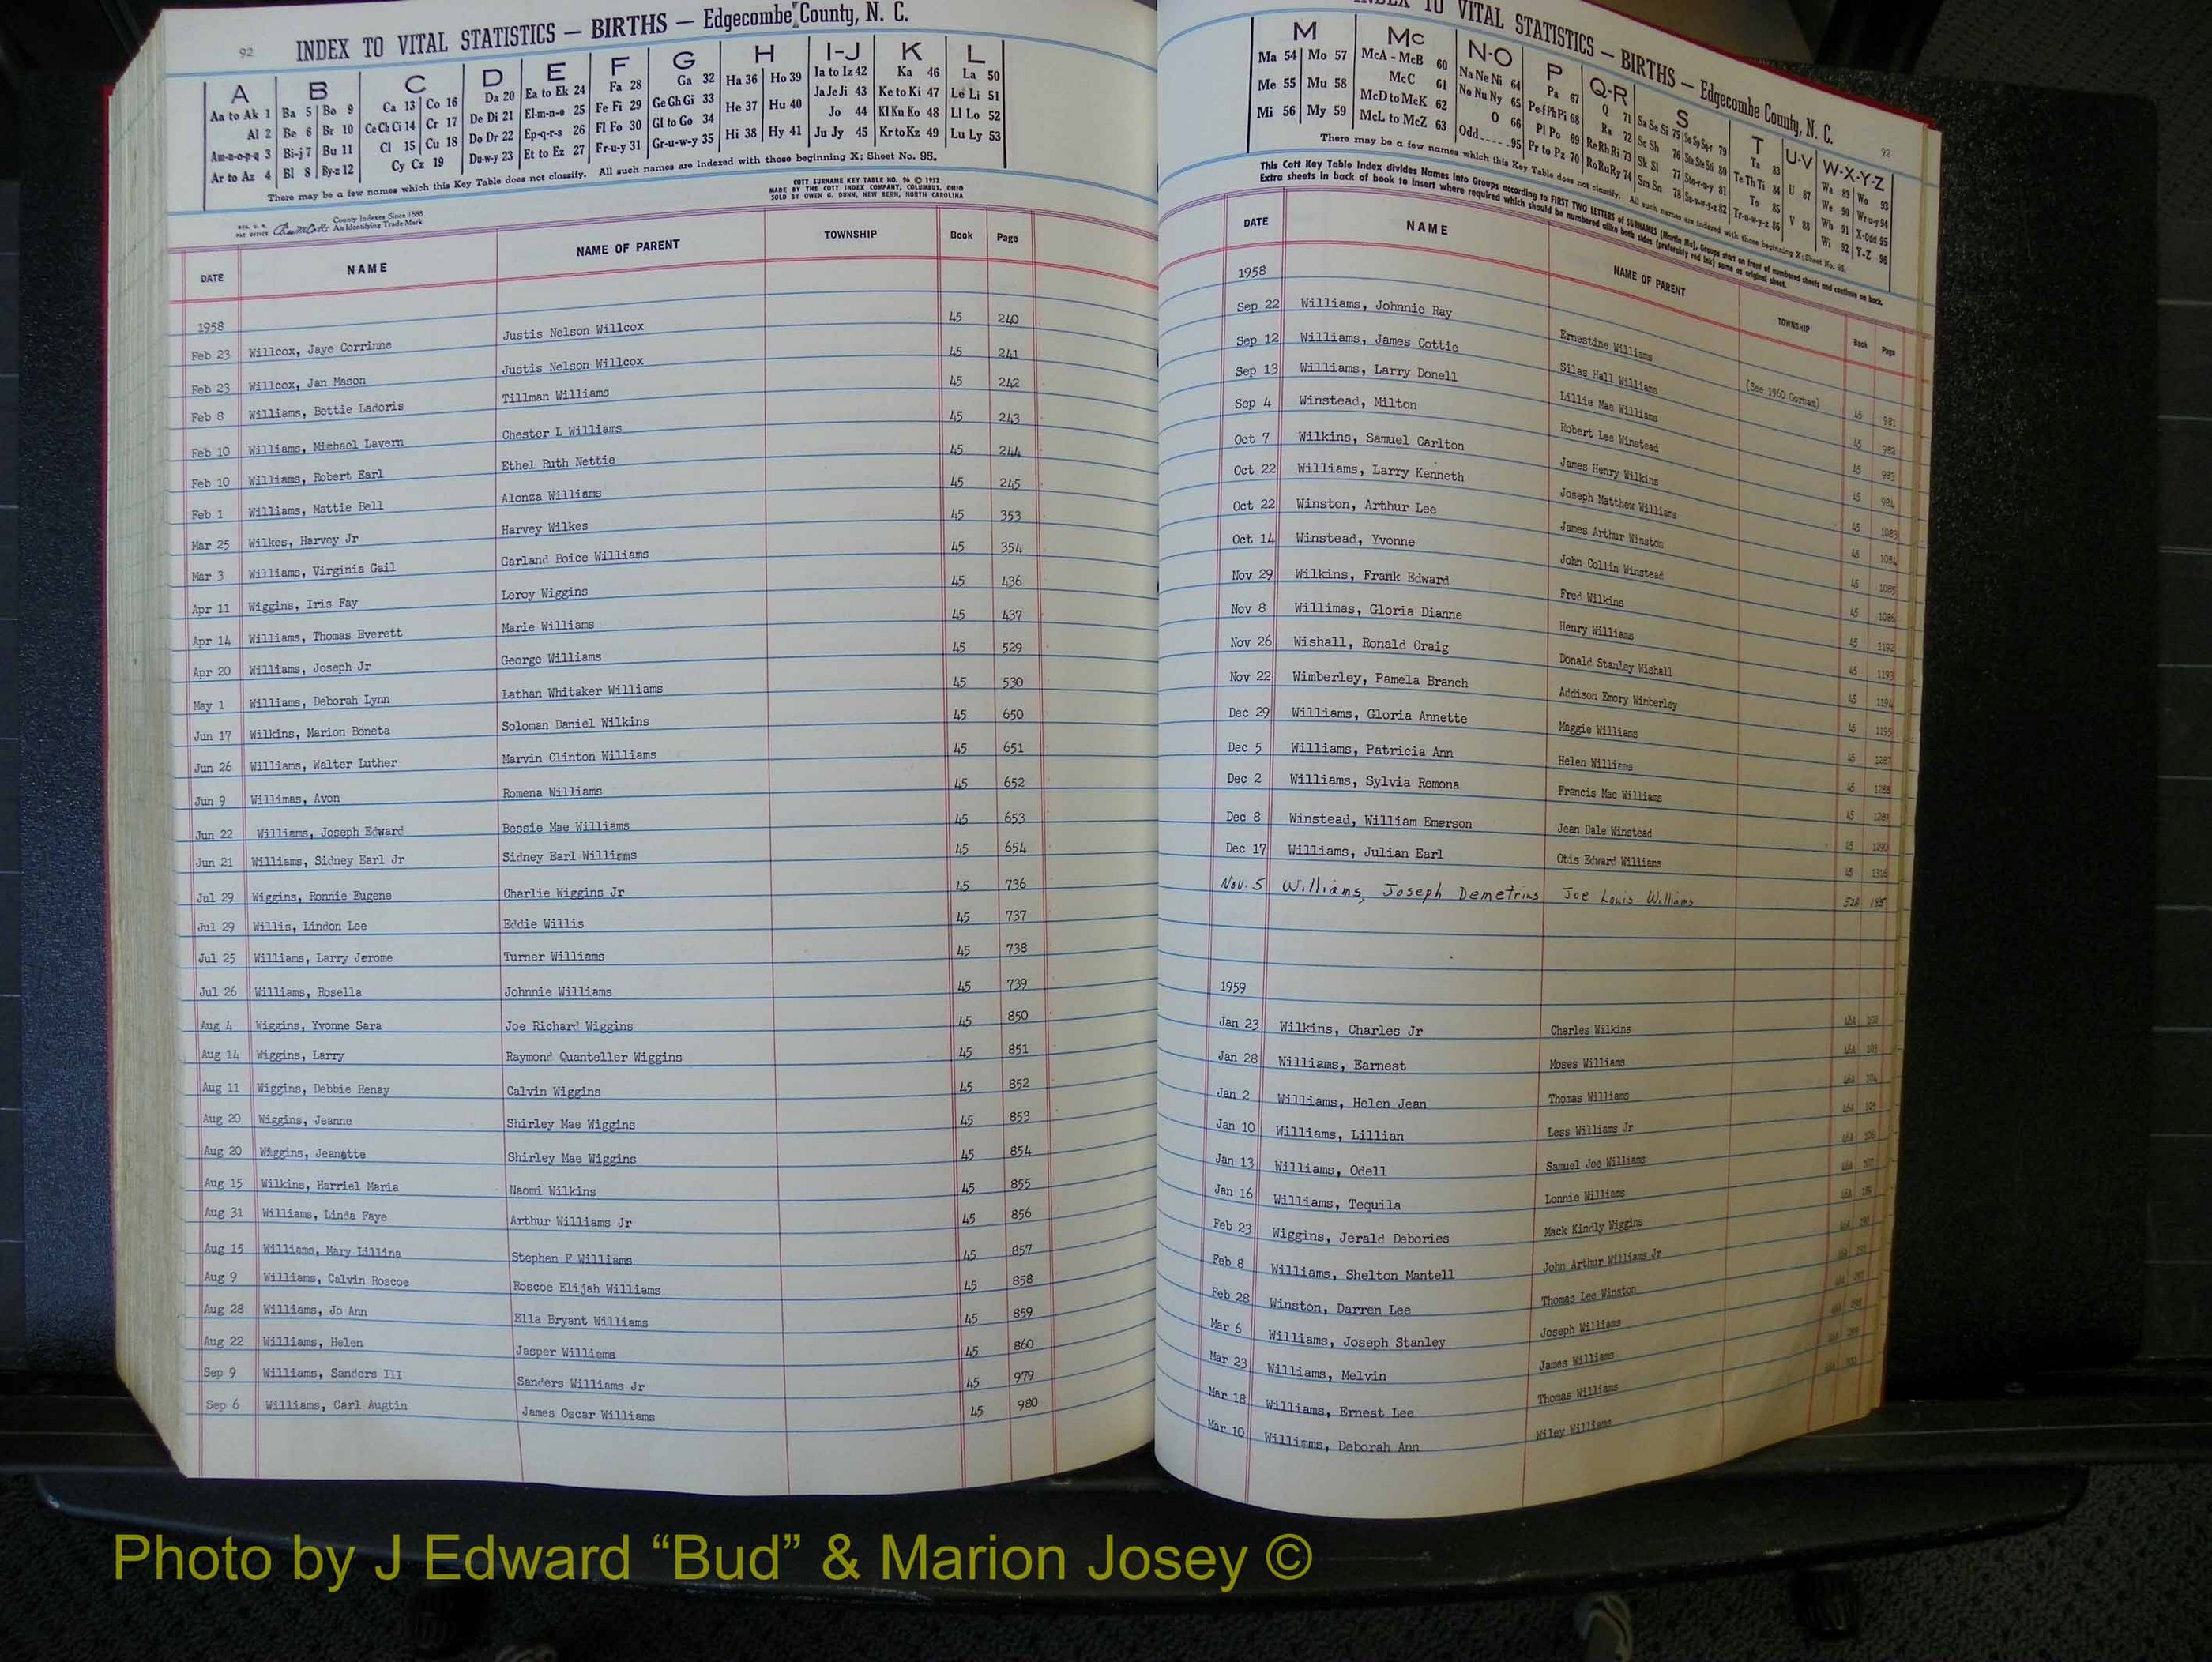 92 INDEX TO VITAL STATISTICS — BIRTHS — Edgecombe County, N. C.
A B C D E F G H I-J K L
Aa to Ak 1 Ba 5 Bo 9 Ca 13 Co 16 Da 20 Ea to Ek 24 Fa 28 Ga 32 Ha 36 Ho 39 Ia to Iz 42 Ka 46 La 50
Al 2 Be 6 Br 10 Ce Ch Ci 14 Cr 17 De Di 21 El-m-n-o 25 Fe Fi 29 Ge Gh Gi 33 He 37 Hu 40 Ja Je Ji 43 Ke to Ki 47 Le Li 51
Am-n-o-p-q 3 Bi-j 7 Bu 11 Cl 15 Cu 18 Do Dr 22 Ep-q-r-s 26 Fl Fo 30 Gl to Go 34 Hi 38 Hy 41 Jo 44 Kl Kn Ko 48 Ll Lo 52
Ar to Az 4 Bl 8 By-z 12 Cy Cz 19 Du-w-y 23 Et to Ez 27 Fr-u-y 31 Gr-u-w-y 35 Ju Jy 45 Kr to Kz 49 Lu Ly 53
There may be a few names which this Key Table does not classify. All such names are indexed with those beginning X; Sheet No. 95.
COTT SURNAME KEY TABLE NO. 96 © 1952
MADE BY THE COTT INDEX COMPANY, COLUMBUS, OHIO
SOLD BY OWEN G. DUNN, NEW BERN, NORTH CAROLINA
County Indexes Since 1888
An Identifying Trade Mark
DATE NAME NAME OF PARENT TOWNSHIP Book Page
1958
Feb 23 Willcox, Jaye Corrinne Justis Nelson Willcox 45 240
Feb 23 Willcox, Jan Mason Justis Nelson Willcox 45 241
Feb 8 Williams, Bettie Ladoris Tillman Williams 45 242
Feb 10 Williams, Michael Lavern Chester L Williams 45 243
Feb 10 Williams, Robert Earl Ethel Ruth Nettie 45 244
Feb 1 Williams, Mattie Bell Alonza Williams 45 245
Mar 25 Wilkes, Harvey Jr Harvey Wilkes 45 353
Mar 3 Williams, Virginia Gail Garland Boice Williams 45 354
Apr 11 Wiggins, Iris Fay Leroy Wiggins 45 436
Apr 14 Williams, Thomas Everett Marie Williams 45 437
Apr 20 Williams, Joseph Jr George Williams 45 529
May 1 Williams, Deborah Lynn Lathan Whitaker Williams 45 530
Jun 17 Wilkins, Marion Boneta Soloman Daniel Wilkins 45 650
Jun 26 Williams, Walter Luther Marvin Clinton Williams 45 651
Jun 9 Willimas, Avon Romena Williams 45 652
Jun 22 Williams, Joseph Edward Bessie Mae Williams 45 653
Jun 21 Williams, Sidney Earl Jr Sidney Earl Williams 45 654
Jul 29 Wiggins, Ronnie Eugene Charlie Wiggins Jr 45 736
Jul 29 Willis, Lindon Lee Eddie Willis 45 737
Jul 25 Williams, Larry Jerome Turner Williams 45 738
Jul 26 Williams, Rosella Johnnie Williams 45 739
Aug 4 Wiggins, Yvonne Sara Joe Richard Wiggins 45 850
Aug 14 Wiggins, Larry Raymond Quanteller Wiggins 45 851
Aug 11 Wiggins, Debbie Renay Calvin Wiggins 45 852
Aug 20 Wiggins, Jeanne Shirley Mae Wiggins 45 853
Aug 20 Wiggins, Jeanette Shirley Mae Wiggins 45 854
Aug 15 Wilkins, Harriel Maria Naomi Wilkins 45 855
Aug 31 Williams, Linda Faye Arthur Williams Jr 45 856
Aug 15 Williams, Mary Lillina Stephen F Williams 45 857
Aug 9 Williams, Calvin Roscoe Roscoe Elijah Williams 45 858
Aug 28 Williams, Jo Ann Ella Bryant Williams 45 859
Aug 22 Williams, Helen Jasper Williams 45 860
Sep 9 Williams, Sanders III Sanders Williams Jr 45 979
Sep 6 Williams, Carl Augtin James Oscar Williams 45 980
INDEX TO VITAL STATISTICS — BIRTHS — Edgecombe County, N. C. 92
M Mc N-O P Q-R S T U-V W-X-Y-Z
Ma 54 Mo 57 McA - McB 60 Na Ne Ni 64 Pa 67 Q 71 Sa Se Si 75 Ta 83 U 87 Wa 89 Wo 93
Me 55 Mu 58 McC 61 No Nu Ny 65 Pe-f Ph Pi 68 Ra 72 Sc Sh 76 Te Th Ti 84 V 88 We 90 Wr-u-y 94
Mi 56 My 59 McD to McK 62 O 66 Pl Po 69 Re Rh Ri 73 Sk Sl 77 To 85 Wh 91 X-Odd 95
McL to McZ 63 Odd 95 Pr to Pz 70 Ro Ru Ry 74 Sm Sn 78 Tr-u-w-y-z 86 Wi 92 Y-Z 96
There may be a few names which this Key Table does not classify. All such names are indexed with those beginning X; Sheet No. 95.
This Cott Key Table Index divides Names into Groups according to FIRST TWO LETTERS of SURNAMES (Martin Ma), Groups start on front of numbered sheets and continue on back.
Extra sheets in back of book to insert where required which should be numbered alike both sides (preferably red ink) same as original sheet.
DATE NAME NAME OF PARENT TOWNSHIP Book Page
1958
Sep 22 Williams, Johnnie Ray Ernestine Williams (See 1960 Gorham) 45 981
Sep 12 Williams, James Cottie Silas Hall Williams 45 982
Sep 13 Williams, Larry Donell Lillie Mae Williams 45 983
Sep 4 Winstead, Milton Robert Lee Winstead 45 984
Oct 7 Wilkins, Samuel Carlton James Henry Wilkins 45 1083
Oct 22 Williams, Larry Kenneth Joseph Matthew Williams 45 1084
Oct 22 Winston, Arthur Lee James Arthur Winston 45 1085
Oct 14 Winstead, Yvonne John Collin Winstead 45 1086
Nov 29 Wilkins, Frank Edward Fred Wilkins 45 1192
Nov 8 Willimas, Gloria Dianne Henry Williams 45 1193
Nov 26 Wishall, Ronald Craig Donald Stanley Wishall 45 1194
Nov 22 Wimberley, Pamela Branch Addison Emory Wimberley 45 1195
Dec 29 Williams, Gloria Annette Maggie Williams 45 1287
Dec 5 Williams, Patricia Ann Helen Williams 45 1288
Dec 2 Williams, Sylvia Remona Francis Mae Williams 45 1289
Dec 8 Winstead, William Emerson Jean Dale Winstead 45 1290
Dec 17 Williams, Julian Earl Otis Edward Williams 45 1316
Nov. 5 Williams, Joseph Demetrius Joe Louis Williams 52A 185
1959
Jan 23 Wilkins, Charles Jr Charles Wilkins
Jan 28 Williams, Earnest Moses Williams
Jan 2 Williams, Helen Jean Thomas Williams
Jan 10 Williams, Lillian Less Williams Jr
Jan 13 Williams, Odell Samuel Joe Williams
Jan 16 Williams, Tequila Lonnie Williams
Feb 23 Wiggins, Jerald Debories Mack Kindly Wiggins
Feb 8 Williams, Shelton Mantell John Arthur Williams Jr
Feb 28 Winston, Darren Lee Thomas Lee Winston
Mar 6 Williams, Joseph Stanley Joseph Williams
Mar 23 Williams, Melvin James Williams
Mar 18 Williams, Ernest Lee Thomas Williams
Mar 10 Williams, Deborah Ann Wiley Williams
Photo by J Edward “Bud” & Marion Josey ©